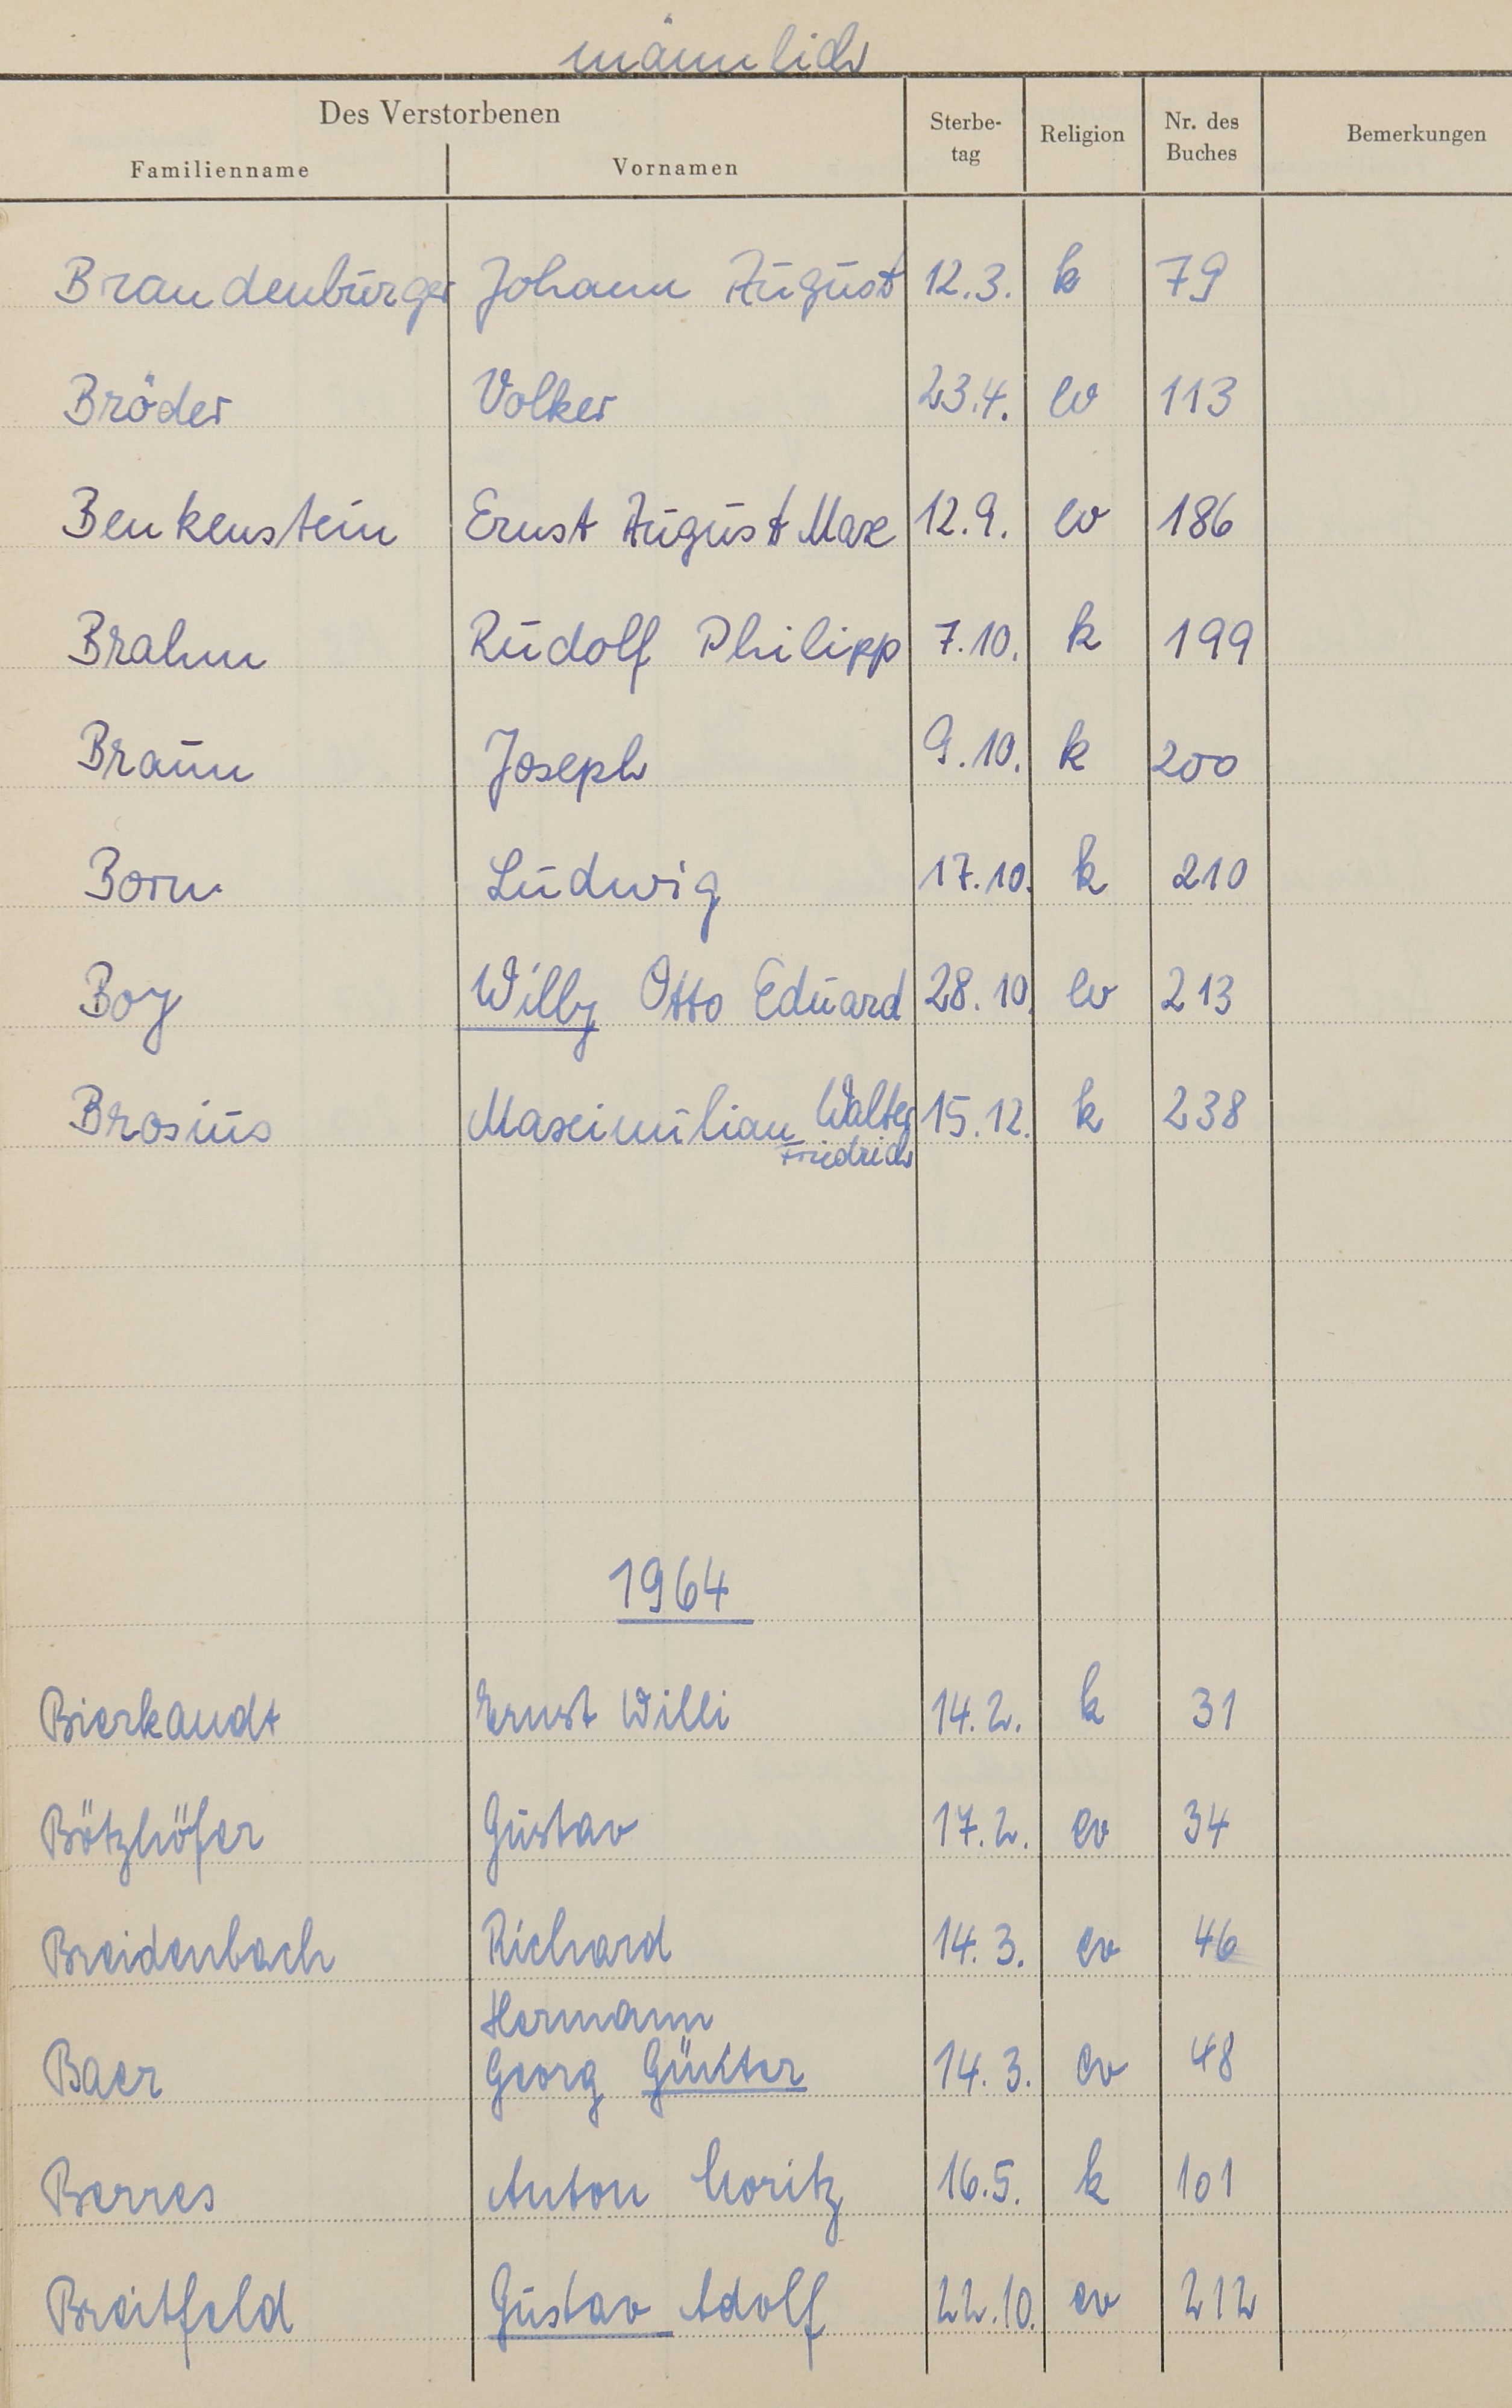 männlich
Des Verstorbenen
Familienname Vornamen Sterbe-tag Religion Nr. des Buches Bemerkungen
Brandenburger Johann August 12.3. k 79
Bröder Volker 23.4. ev 113
Benkenstein Ernst August Max 12.9. ev 186
Brahm Rudolf Philipp 7.10. k 199
Braun Joseph 9.10. k 200
Born Ludwig 17.10. k 210
Boy Willy Otto Eduard 28.10. ev 213
Brosius Maximilian Walter 15.12. k 238
Friedrich
1964
Bierkandt Ernst Willi 14.2. k 31
Bötzhöfer Gustav 17.2. ev 34
Breidenbach Richard 14.3. ev 46
Hermann
Baer Georg Günter 14.3. ev 48
Berres Anton Moritz 16.5. k 101
Breitfeld Gustav Adolf 22.10. ev 212